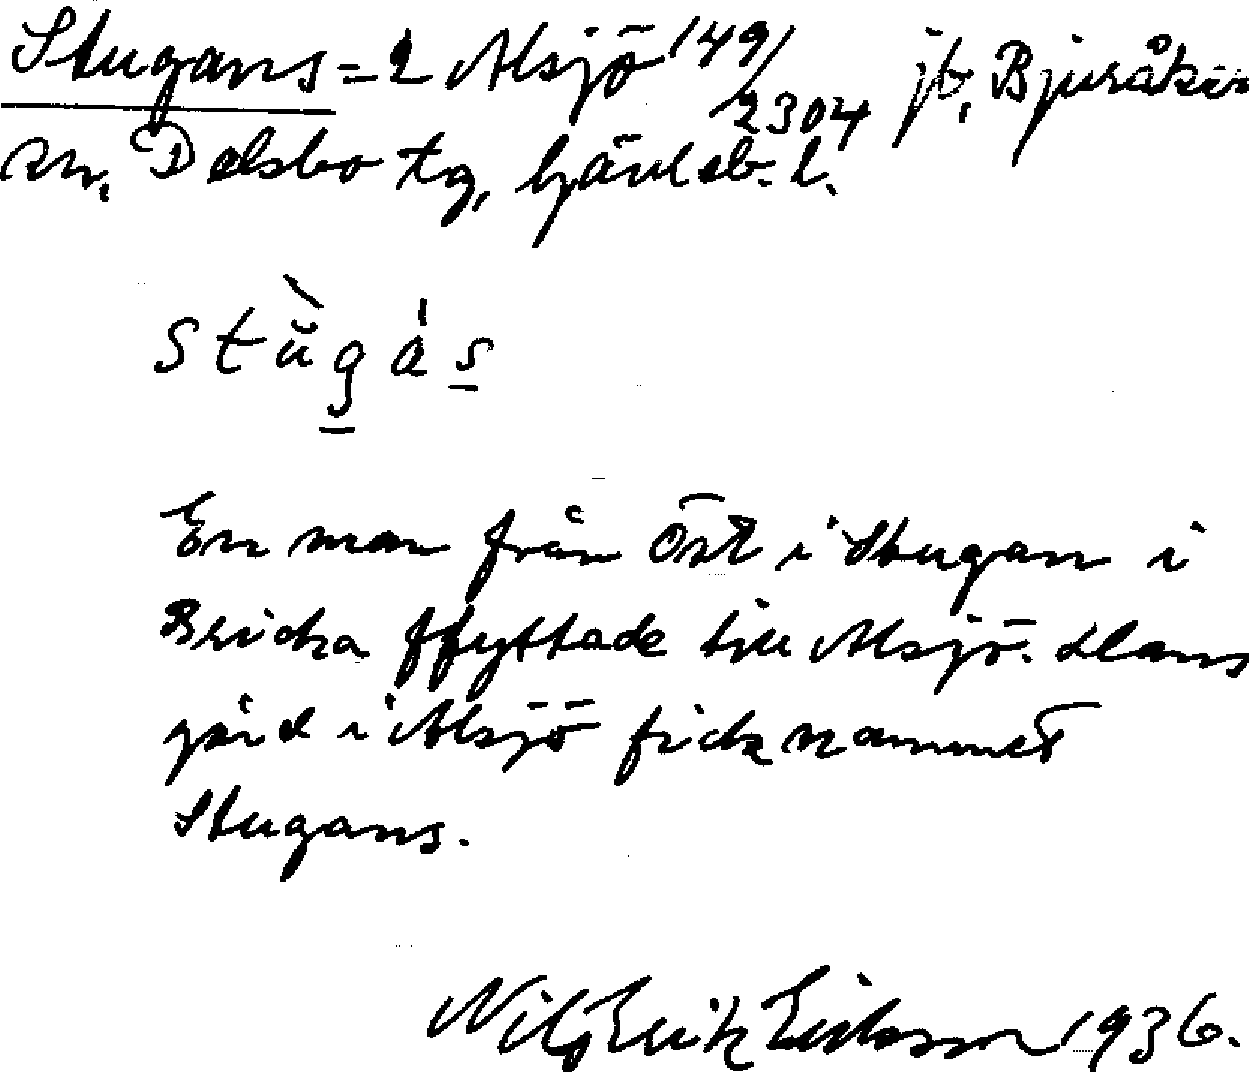 Stugans = 2 Alsjö 149/2304 jb, Bjuråker
sn, Delsbo tg, Gävleb. l.
stŭ̀gás
En man från Öst i Stugan i
Bricka flyttade till Alsjö. Hans
gård i Alsjö fick namnet
Stugans.
Nils Erik Eriksson 1936.